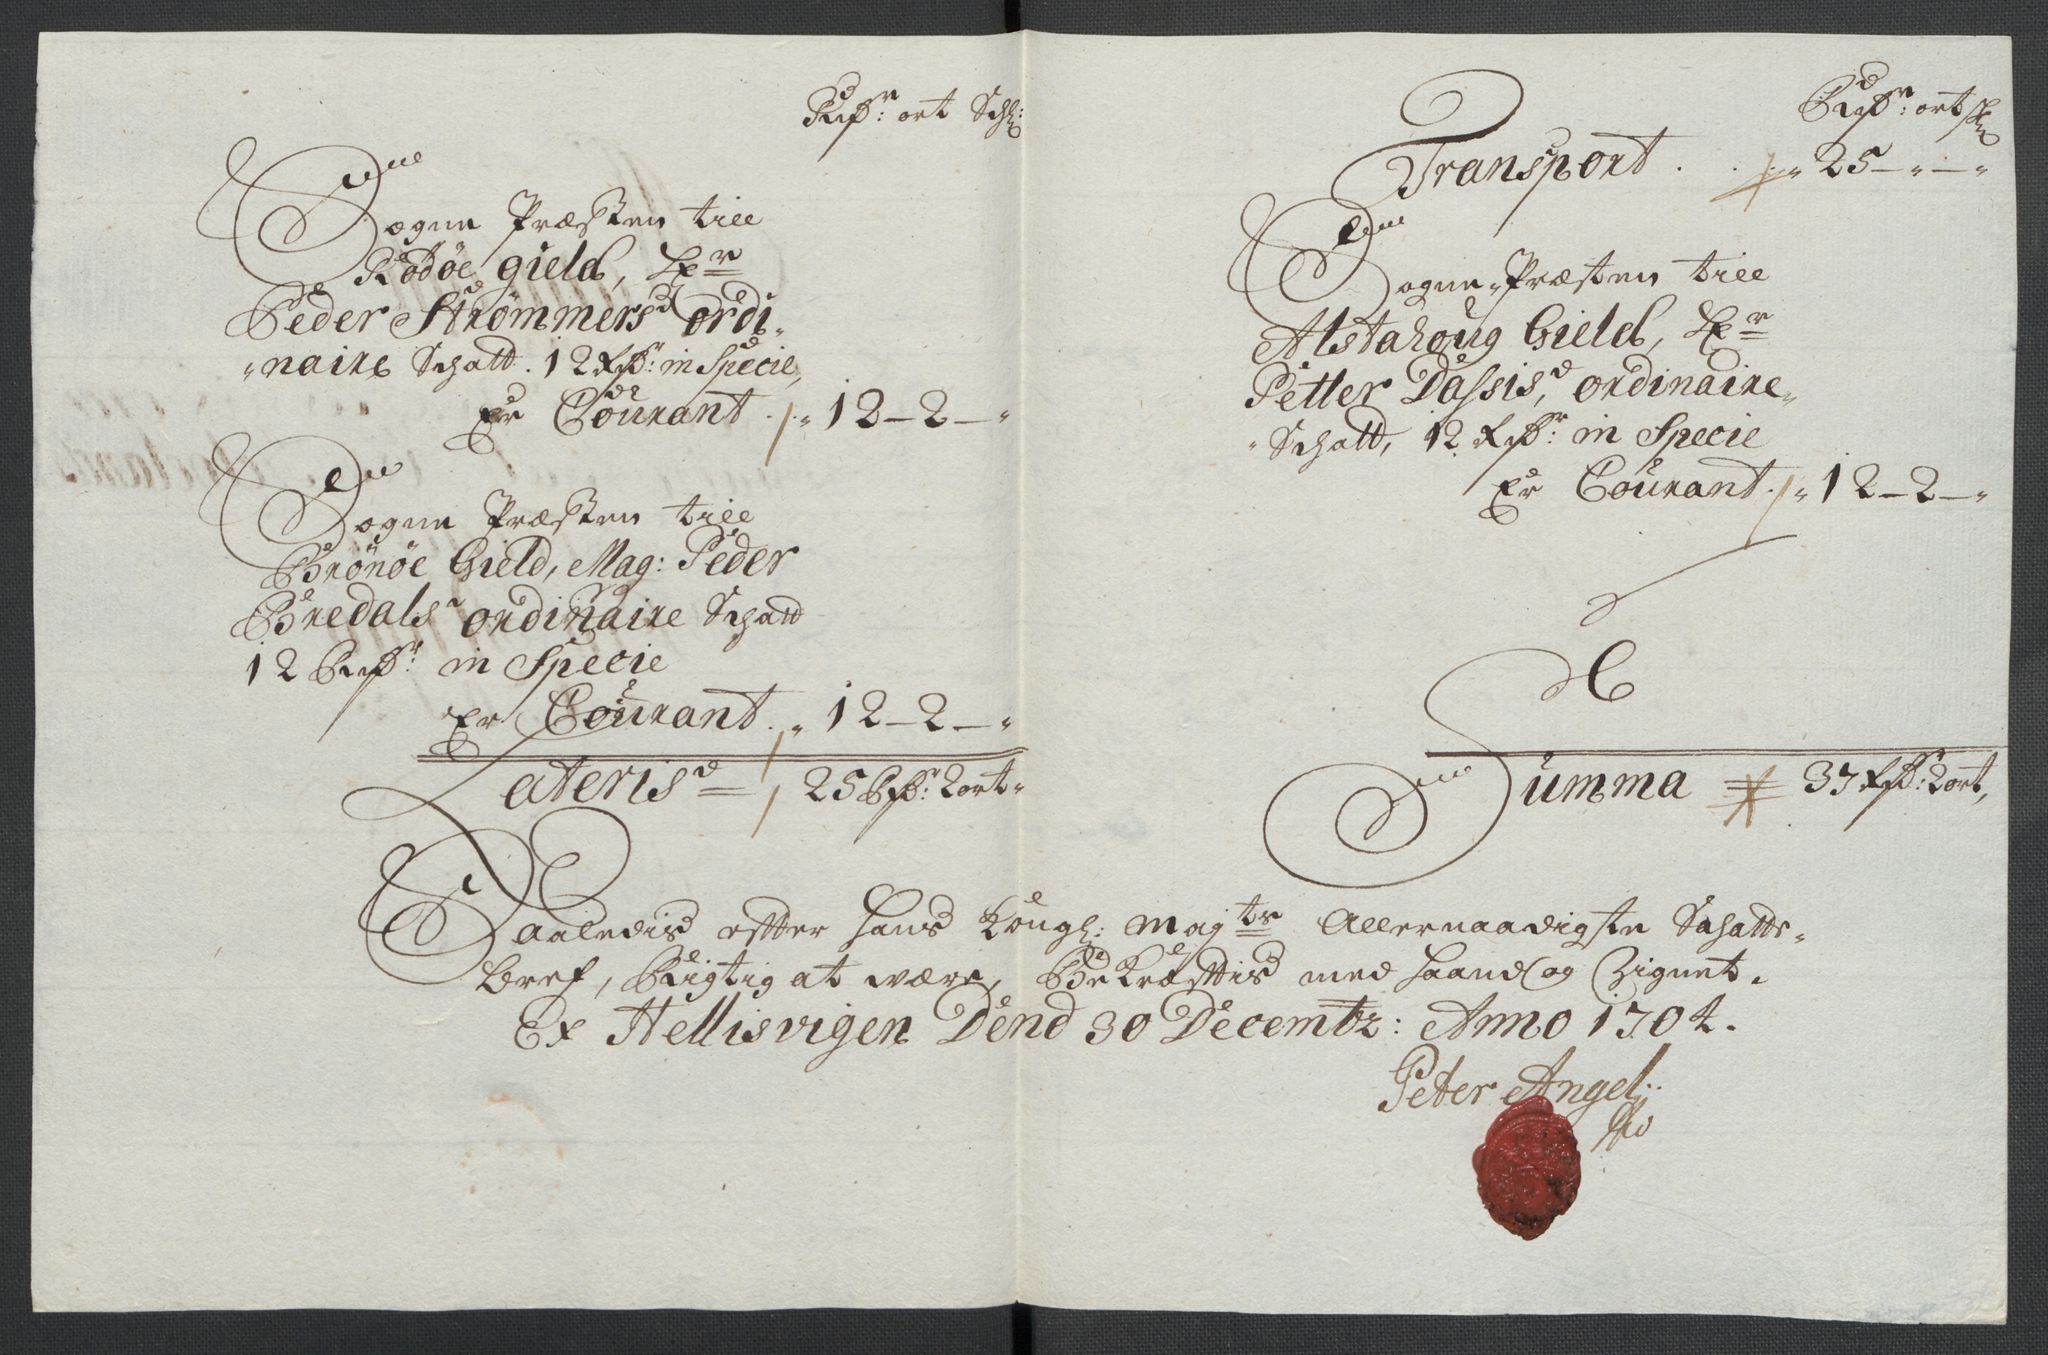 Rdr: ort Sch:
Sogne Præsten till
Rödöe gield, Hr
Peder Strømmers ordi-
naire Schatt. 12 Rdr: in Specie,
Er Courant . „ 12 – 2 – „
Sogne Præsten till
Brönöe Gield, Mag: Peder
Bredals ordinaire Schatt
12 Rdr: in Specie
Er Courant . „ 12 – 2 – „
Lateris = 25 Rdr: 2 ort „
Transport . . „ 25 – „ – „
Rdr: ort
Sogne-Præsten till
Alstahoug Gield, Hr
Petter Dassis, ordinaire
Schatt, 12 Rdr: in Specie
Er Courant . „ 12 – 2 – „
Summa = 37 Rdr: 2 ort,
Saaledis effter Hans Kongl: Mayts Allernaadigste Schatts-
bref, Rigtig at være, Bekræfftis med Haand og Zignet.
Ex Hellisvigen Dend 30 Decembr: Anno 1704.
Peter Angel